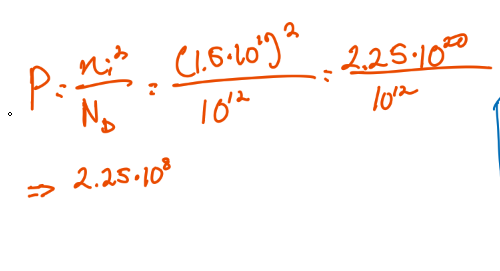 P = ni²/N_D = (1.5·10¹⁰)²/10¹² = 2.25·10²⁰/10¹²
⇒ 2.25·10⁸